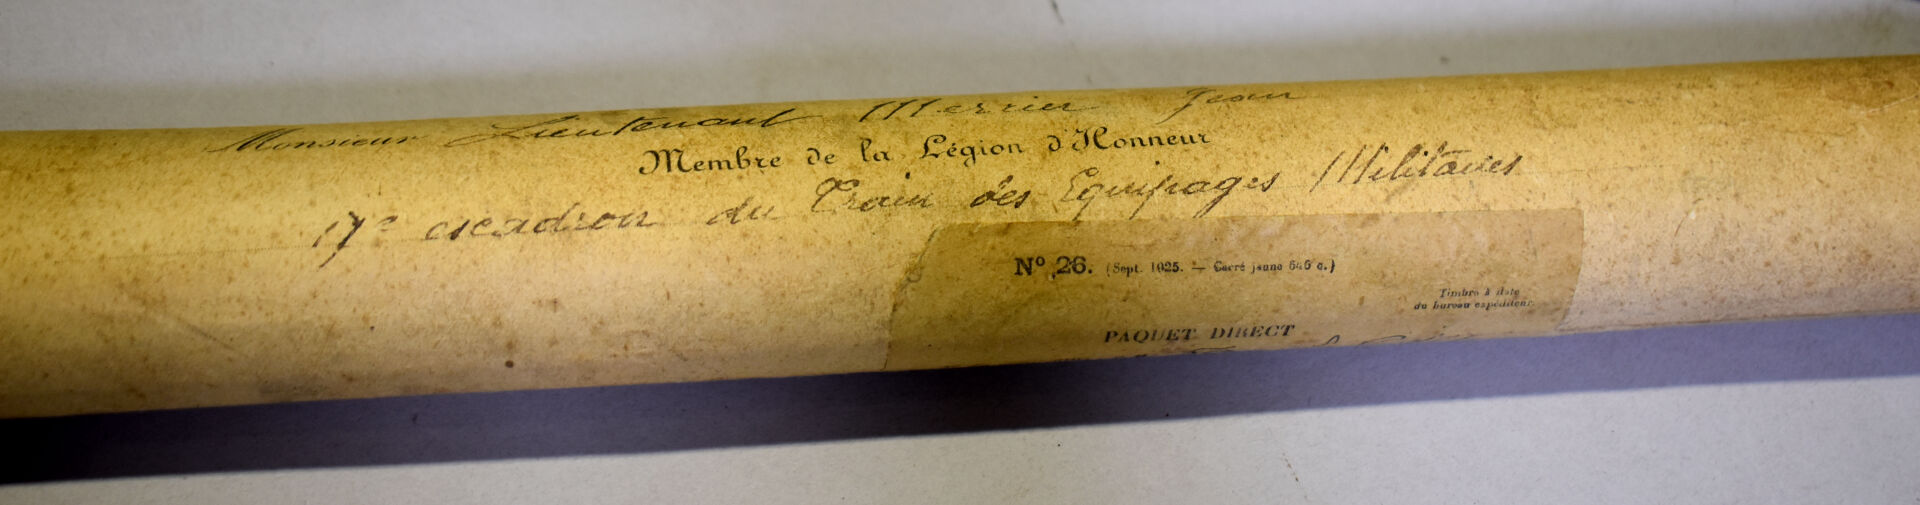 Monsieur Lieutenant Mercier Jean
Membre de la Légion d'Honneur
17e escadron du Train des Equipages Militaires
No 26. (Sept. 1925. — Carré jaune 646 c.)
Timbre à date
du bureau expéditeur.
PAQUET DIRECT